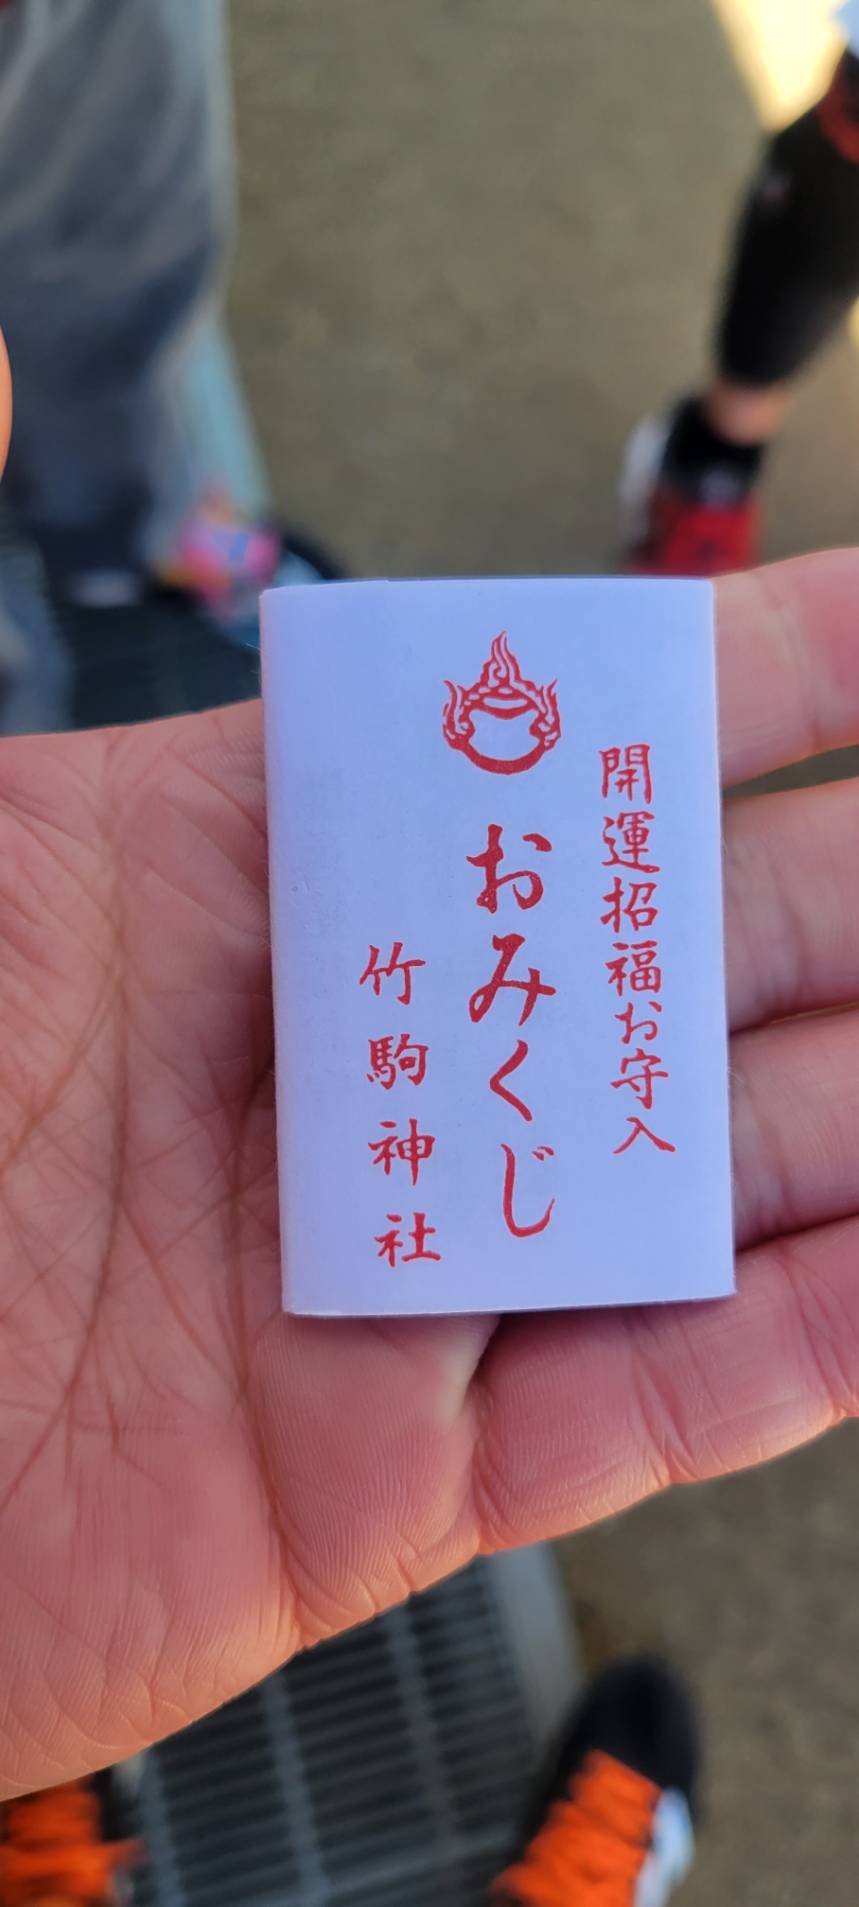 開運招福お守入
おみくじ
竹駒神社